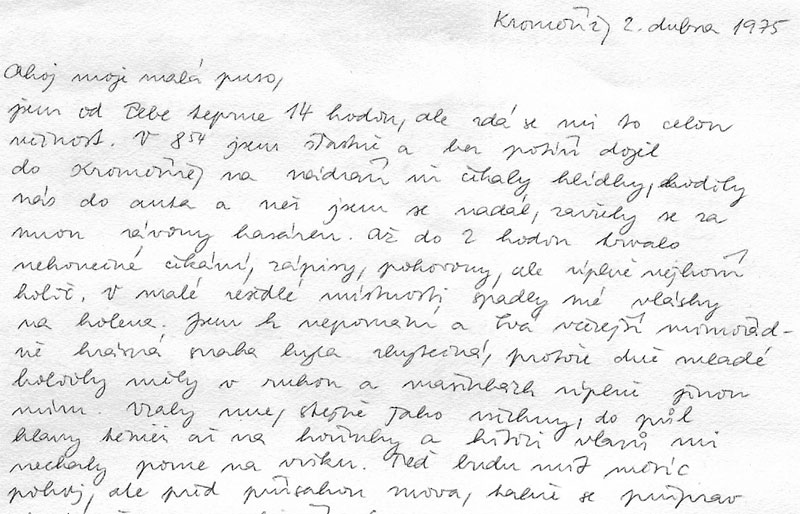 Kroměříž 2. dubna 1975
Ahoj moje malá puso,
jsem od Tebe teprve 14 hodin, ale zdá se mi to celou
věčnost. V 8 54 jsem šťastně a bez potíží dojel
do Kroměříže na nádraží mě čekaly hlídky, hodily
nás do auta a než jsem se nadál, zavřely se za
mnou závory kasáren. Až do 2 hodin trvalo
nekonečné čekání, zápisy, pohovory, ale úplně nejhorší
holič. V malé místnosti spadly mé vlásky
na kolena. Jsem k nepoznání a Tvá včerejší mimořád-
ně krásná snaha byla zbytečná, protože dvě mladé
holičky měly v rukou a mašinkách úplně jinou
míru. Vzaly mne, stejně jako všechny, do půl
hlavy téměř až na kořínky a kštici vlasů mi
nechaly pouze na vršku. Teď budu mít měsíc
pokoj, ale před přísahou znova, takže se připrav